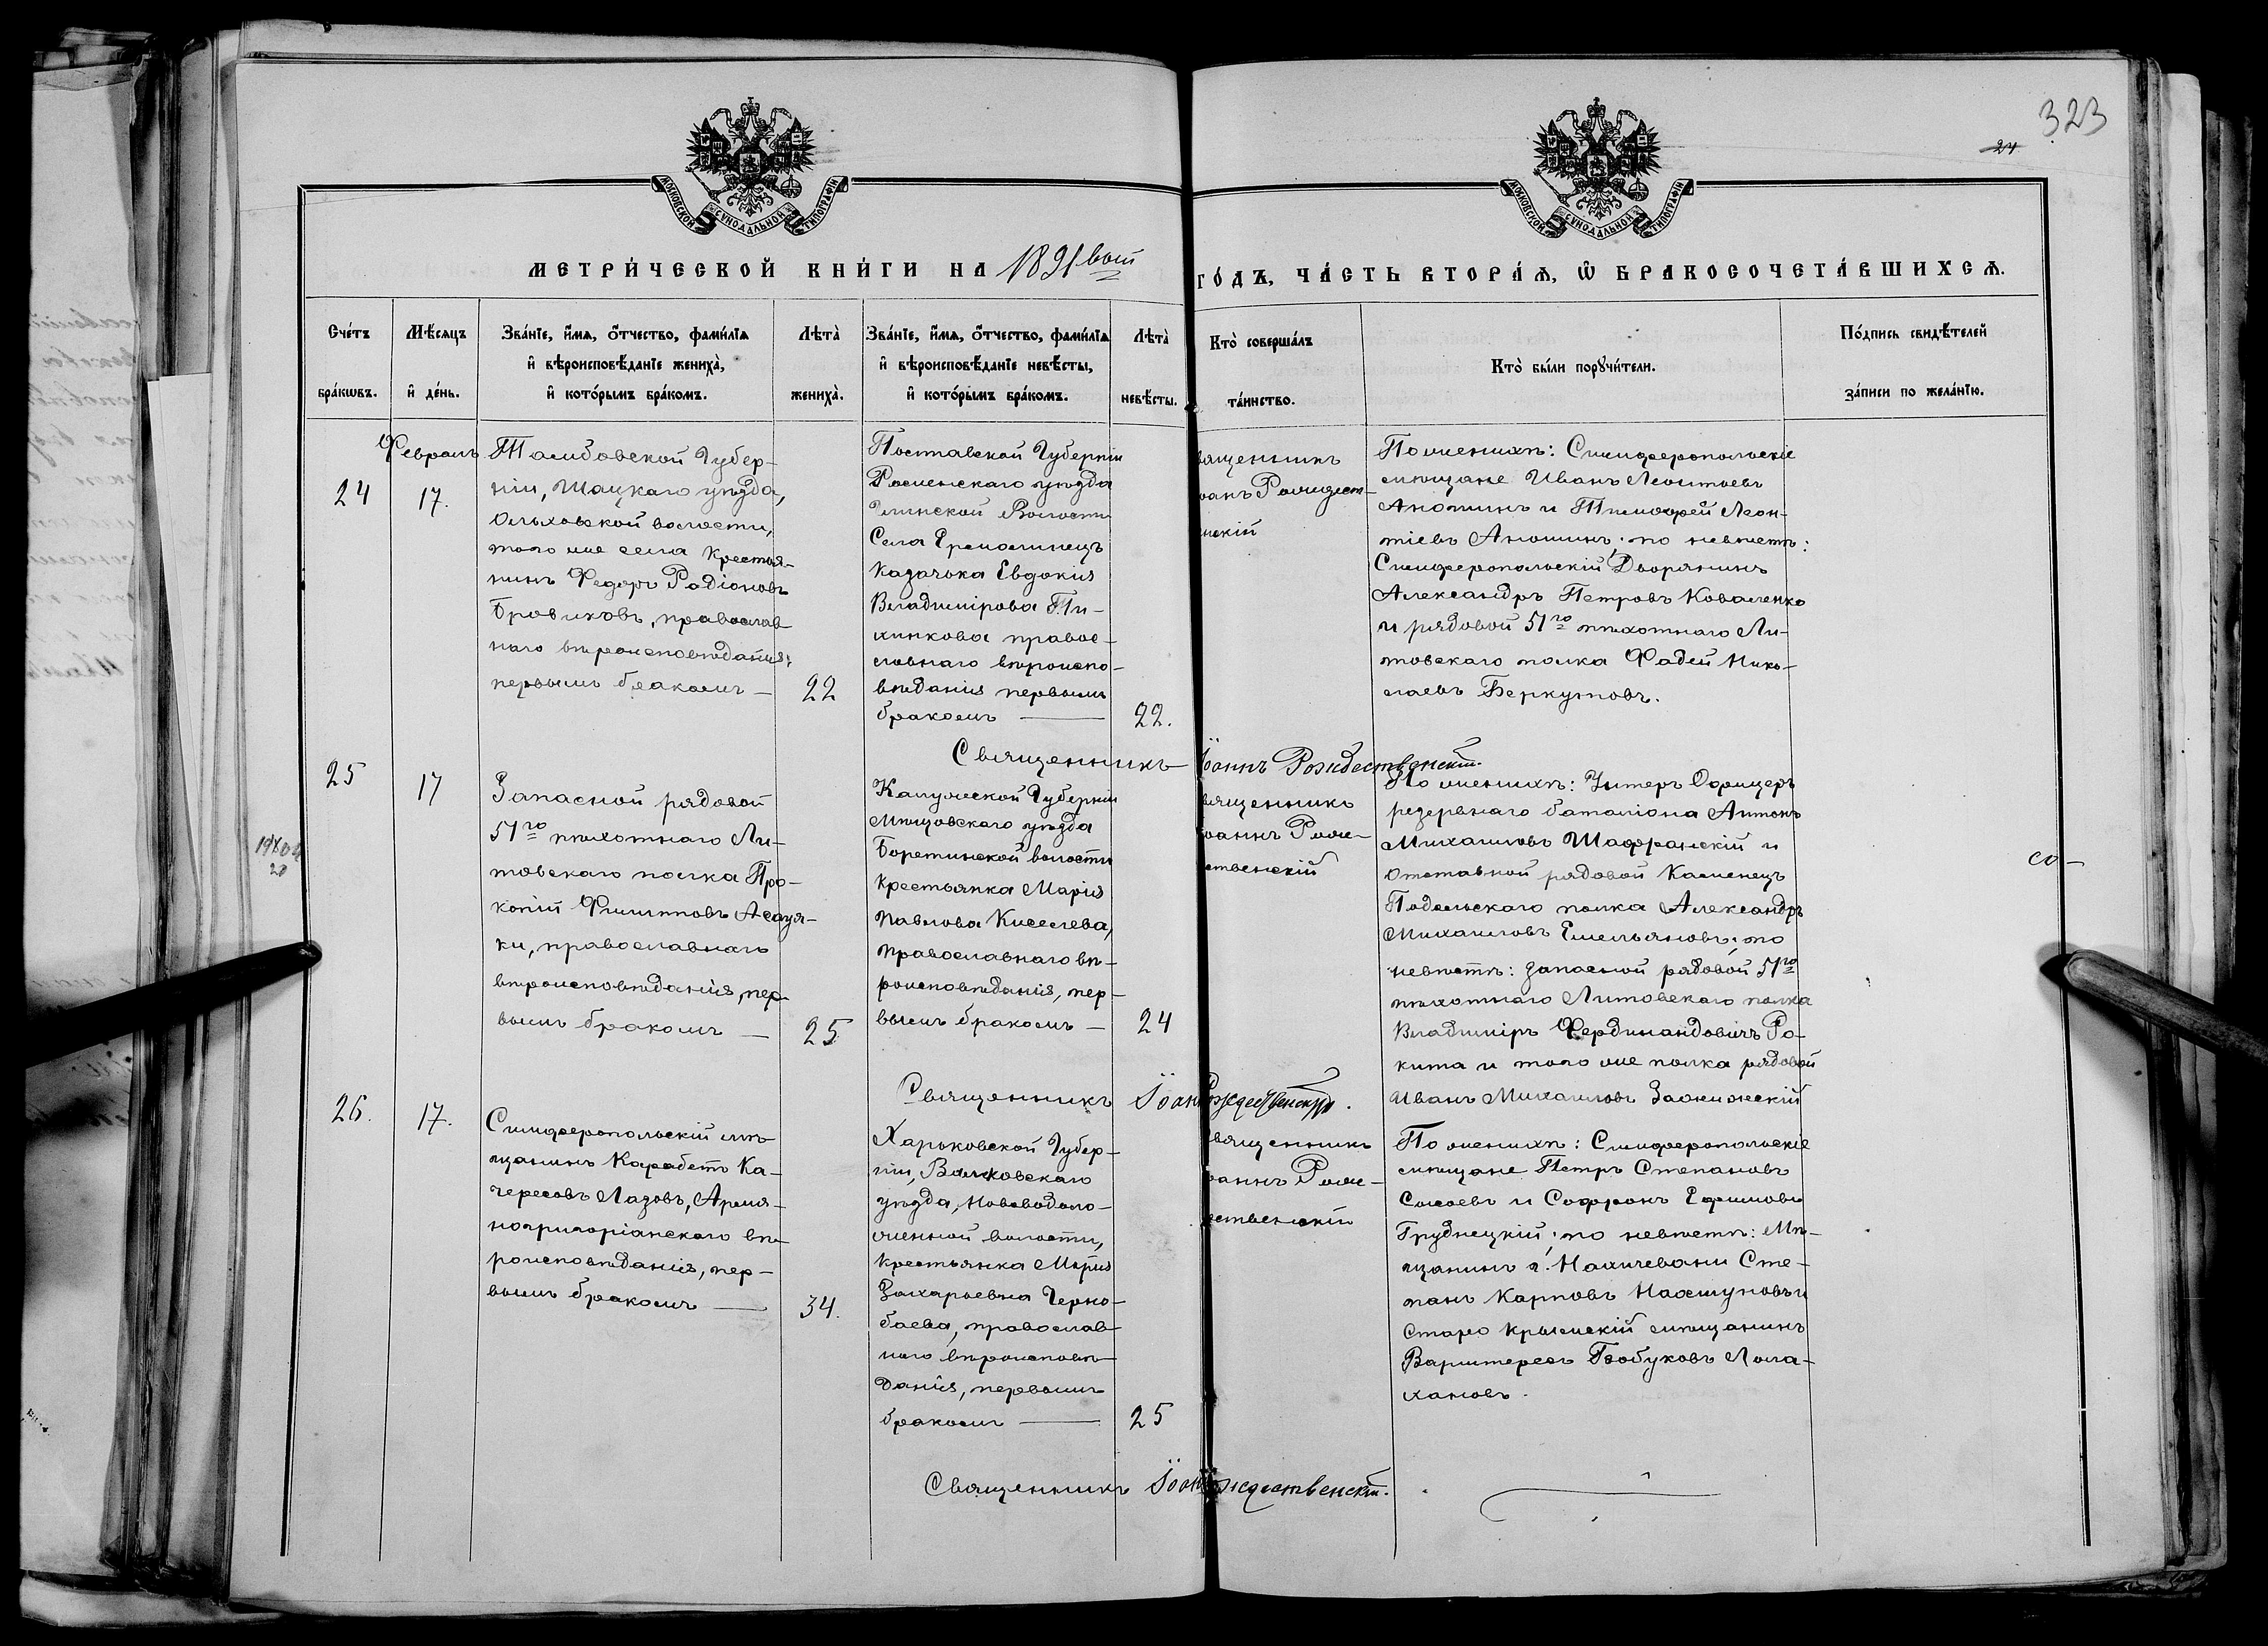 323
24
МОСКОВСКОЙ СѴНОДАЛЬНОЙ ТИПОГРАФІИ
МОСКОВСКОЙ СѴНОДАЛЬНОЙ ТИПОГРАФІИ
МЕТРИ́ЧЕСКОЙ КНИ́ГИ НА 1891вый ГО́ДЪ, ЧА́СТЬ ВТОРА́Ѧ, Ѡ҆ БРАКОСОЧЕТА́ВШИХСѦ.
Сче́тъ бра́кωвъ.
Мѣ́сяцъ и҆ де́нь.
Зва́нїе, и҆́мѧ, ѻ҆́тчество, фами́лїѧ
и҆ вѣроисповѣ́данїе жениха̀,
и҆ кото́рымъ бра́комъ.
Лѣта̀ жениха̀.
Зва́нїе, и҆́мѧ, ѻ҆́тчество, фами́лїѧ
и҆ вѣроисповѣ́данїе невѣ́сты,
и҆ кото́рымъ бра́комъ.
Лѣта̀ невѣ́сты.
Кто̀ соверша́лъ
та́инство.
Кто̀ бы́ли порꙋчи́тели.
По́дпись свидѣ́телей
за́писи по жела́нїю.
24
Февраль
17.
Тамбовской Губер-
ніи, Шацкаго уѣзда,
Ольховской волости,
того же села Крестья-
нинъ Федоръ Радіоновъ
Бровиковъ, православ
наго вѣроисповѣданія;
первымъ бракомъ —
22
Полтавской Губерніи
Роменскаго уѣзда
Волости
Села Ермолинецъ
Казачька Евдокія
Владимірова Ти-
хинкова правос-
лавнаго вѣроиспо-
вѣданія первымъ
бракомъ —
22.
вященникъ
оанъ Рождест-
нскій
По женихѣ: Симферопольскіе
мѣщане Иванъ Леонтьевъ
Аношинъ и Тимофей Леон-
тіевъ Аношинъ; по невѣстѣ:
Симферопольскій Дворянинъ
Александръ Петровъ Коваленко
и рядовой 51го пѣхотнаго Ли-
товскаго полка Фадей Нико-
лаевъ Беркутовъ.
Священникъ Іоаннъ Рождественскій.
25
17
Запасной рядовой
51го пѣхотнаго Ли-
товскаго полка Про-
копій Филипповъ
ки, православнаго
вѣроисповѣданія, пер
вымъ бракомъ —
25
Калужской Губерніи
Мещовскаго уѣзда
Боретинской волости
Крестьянка Марія
Павлова Киселева,
православнаго вѣ-
роисповѣданія, пер-
вымъ бракомъ —
24
вященникъ
оаннъ Рож-
ственскій
По женихѣ: Унтеръ Офицеръ
резервнаго баталіона Антонъ
Михаиловъ Шафранскій и
отставной рядовой Каменецъ
Подольскаго полка Александръ
Михаиловъ Емельяновъ; по
невѣстѣ: запасной рядовой 51го
пѣхотнаго Литовскаго полка
Владиміръ Фердинандовичъ Ро-
кита и того же полка рядовой
Иванъ Михаиловъ
Священникъ Іоаннъ Рождественскій.
26.
17.
Симферопольскій мѣ
щанинъ Карабетъ Ка-
чересовъ Лазовъ, Армя-
ногригоріанскаго вѣ
роисповѣданія, пер-
вымъ бракомъ —
34.
Харьковской Губер-
ніи, Валковскаго
уѣзда, Нововодоло-
женной волости,
Крестьянка Марія
Захарьевна Черно-
баева, православ-
наго вѣроисповѣ-
данія, первымъ
бракомъ —
25
вященникъ
оаннъ Рож-
ественскій
По женихѣ: Симферопольскіе
мѣщане Петръ Степановъ
Сысоевъ и Софронъ Ефимовъ
Грудницкій; по невѣстѣ: Мѣ-
щанинъ г. Нахичевани Сте-
панъ Карповъ Нахшуновъ и
Старо Крымскій мѣщанинъ
Вартересъ Лола-
хановъ.
Священникъ Іоаннъ Рождественскій.